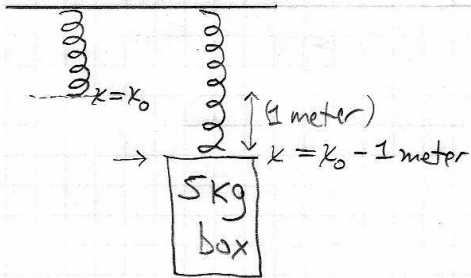 x = x₀
(1 meter)
x = x₀ - 1 meter
5kg
box